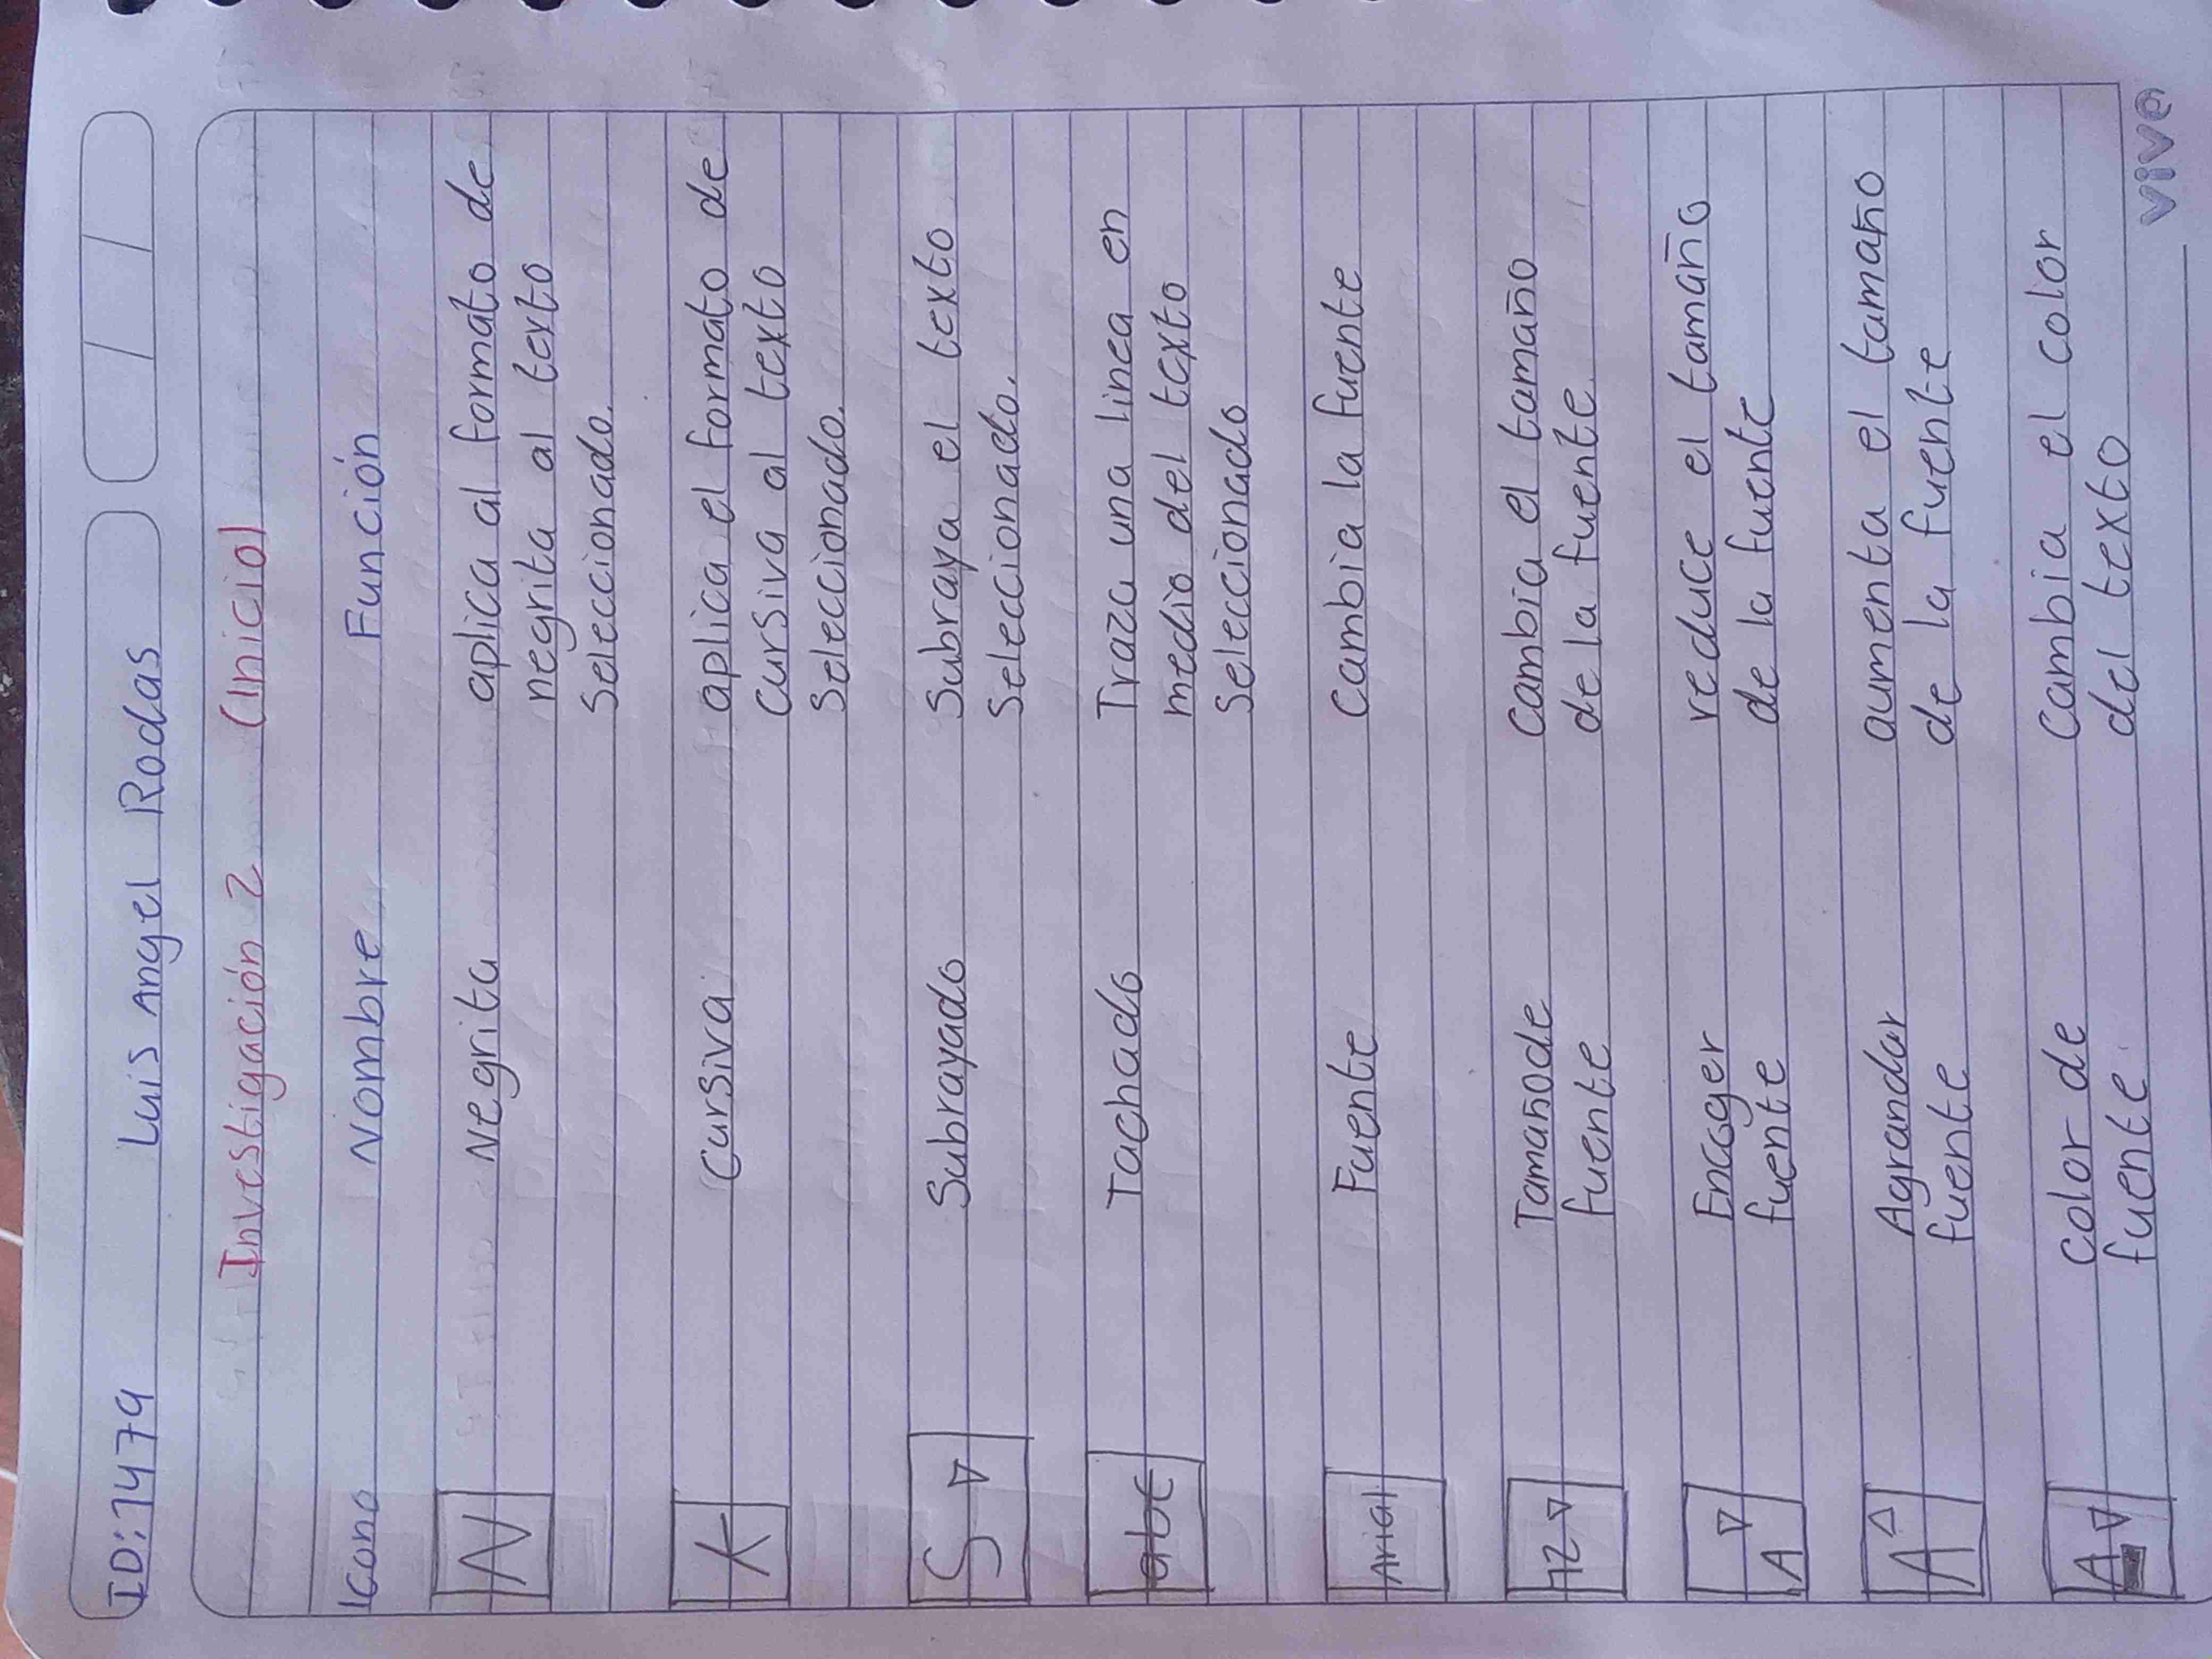 ID:1479 Luis Angel Rodas
Investigación 2 (Inicio)
Icono Nombre Función
N Negrita aplica al formato de
negrita al texto
Seleccionado.
K Cursiva aplica el formato de
cursiva al texto
Seleccionado.
S Subrayado Subraya el texto
Seleccionado.
abc Tachado Traza una linea en
medio del texto
Seleccionado
Arial Fuente Cambia la fuente
12 Tamaño de Cambia el tamaño
fuente de la fuente
A Encoger reduce el tamaño
fuente de la fuente
A Agrandar aumenta el tamaño
fuente de la fuente
A Color de Cambia el color
fuente del texto
viva